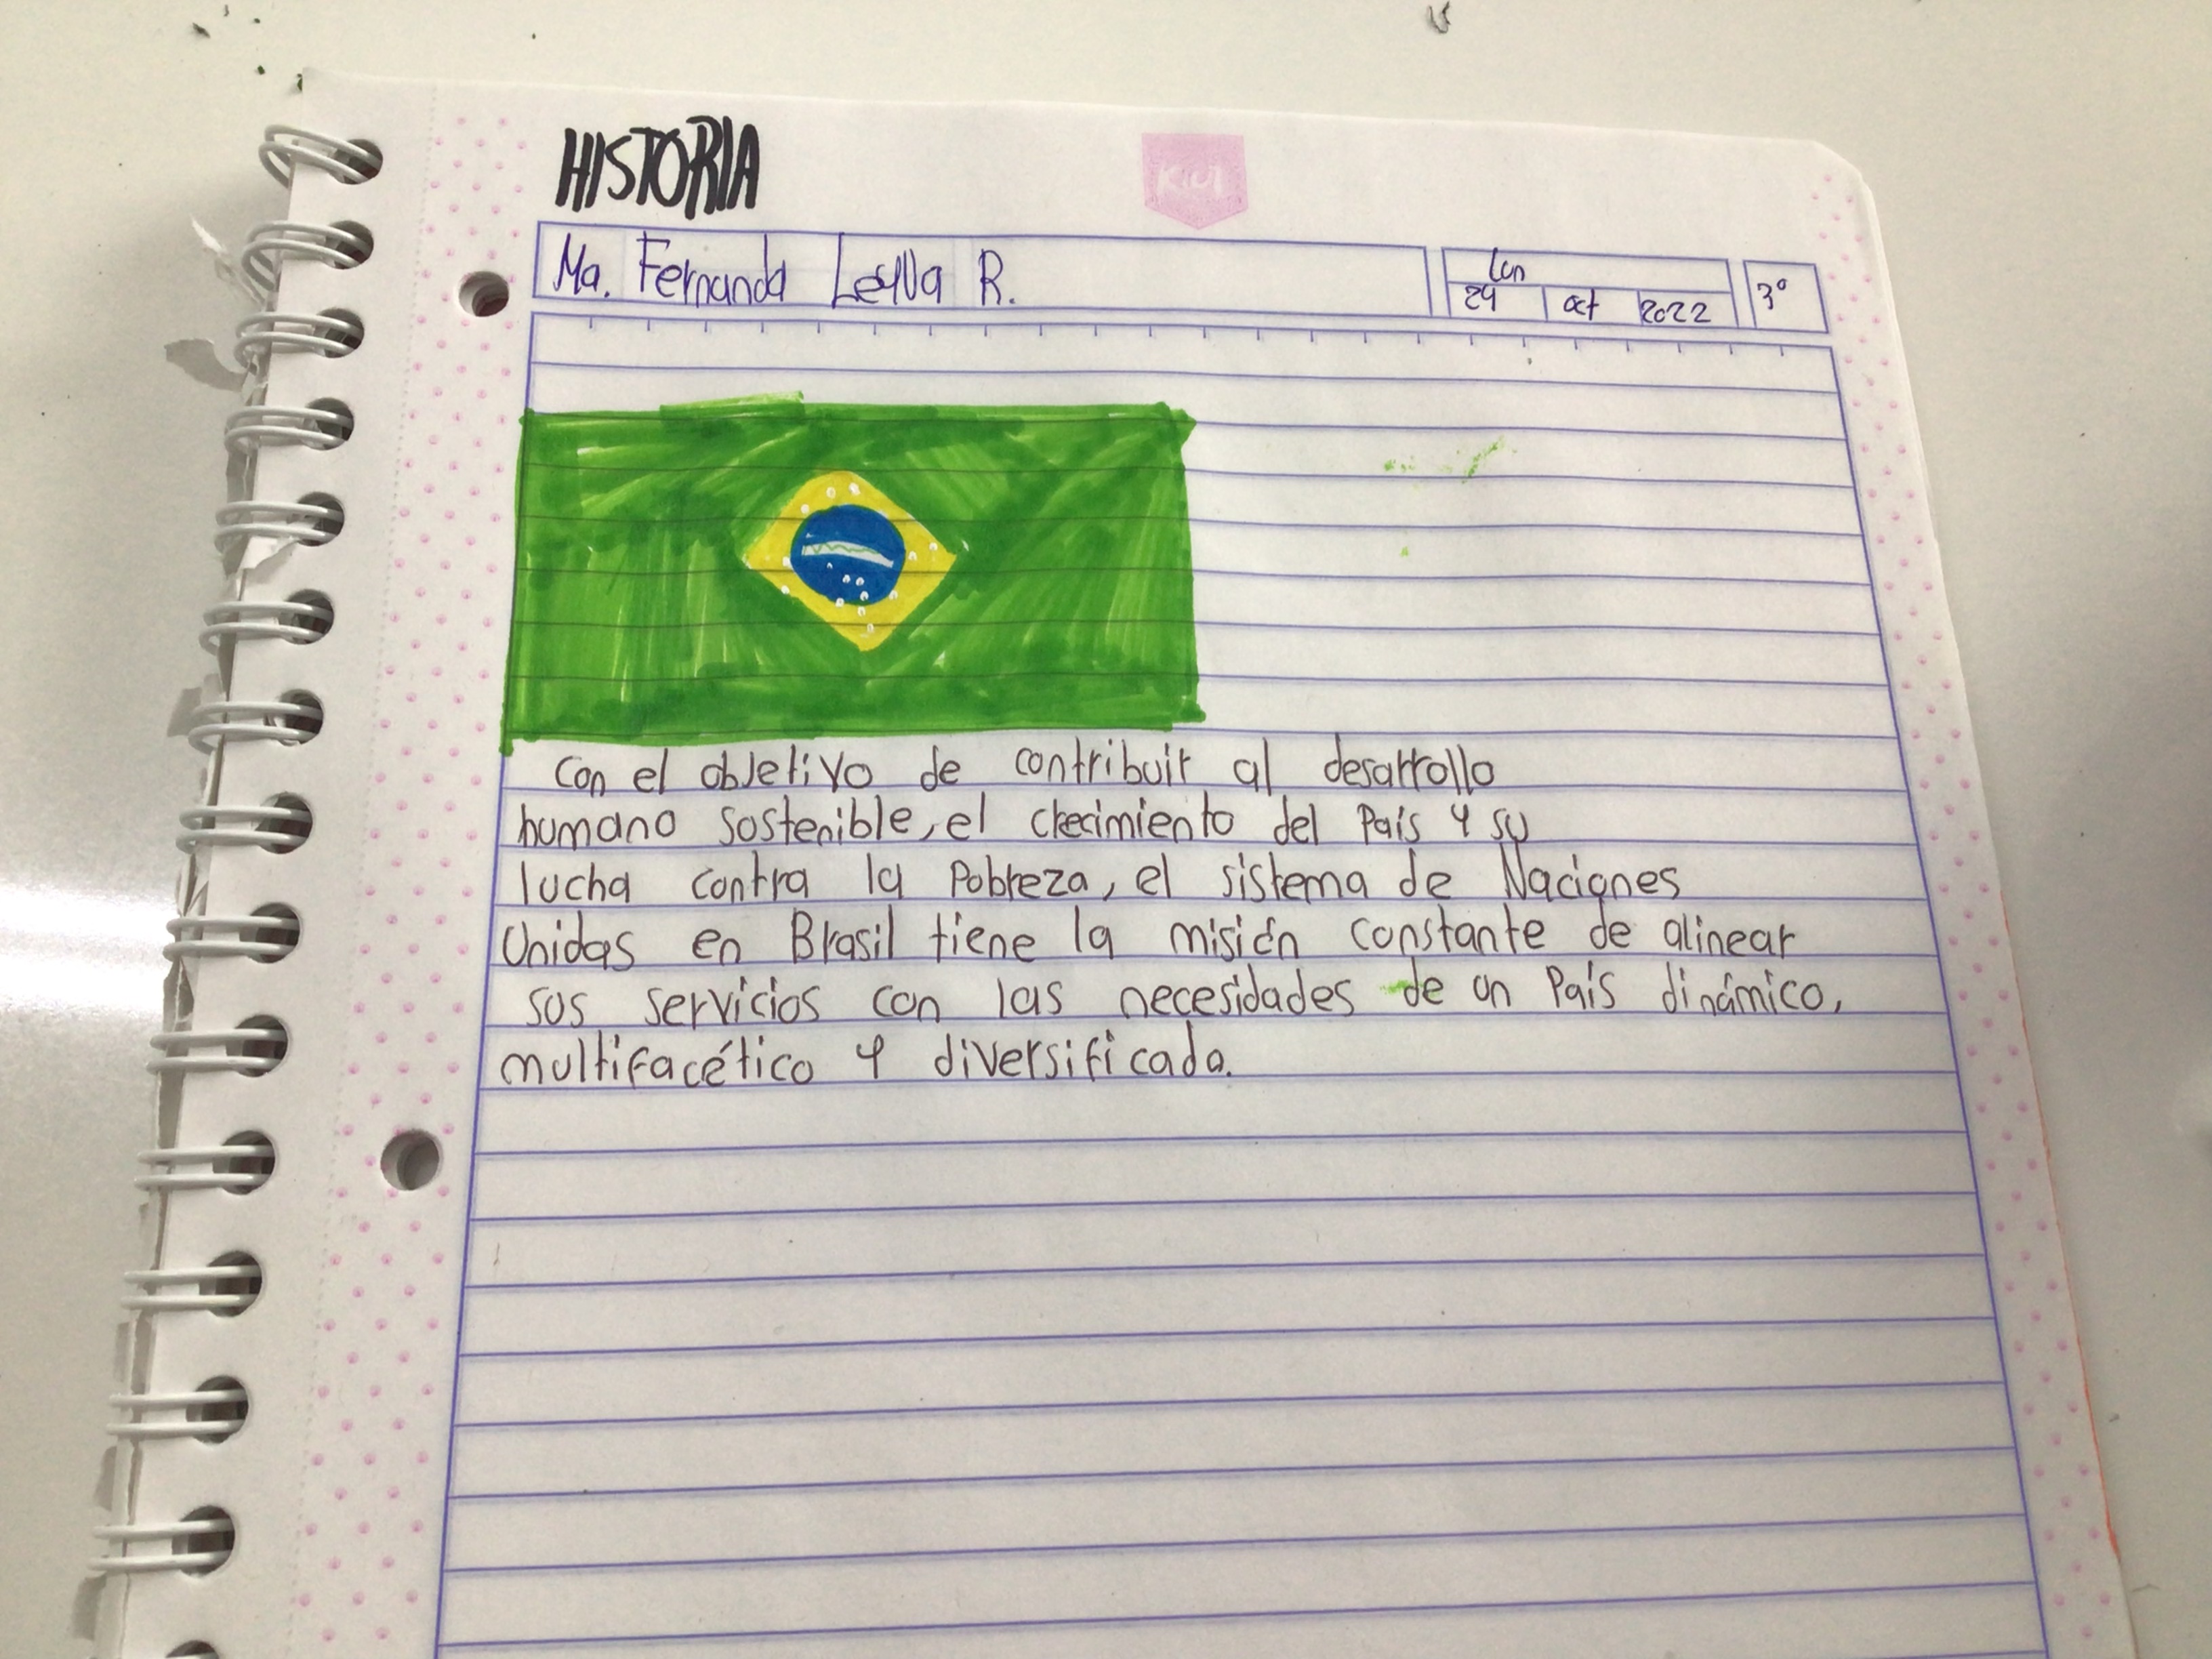 HISTORIA
KIUI
Ma. Fernanda Leyva R.
Lun
24 oct 2022
3°
Con el objetivo de contribuir al desarrollo
humano sostenible, el crecimiento del País y su
lucha contra la Pobreza, el sistema de Naciones
Unidas en Brasil tiene la misión constante de alinear
sus servicios con las necesidades de un País dinámico,
multifacético y diversificado.